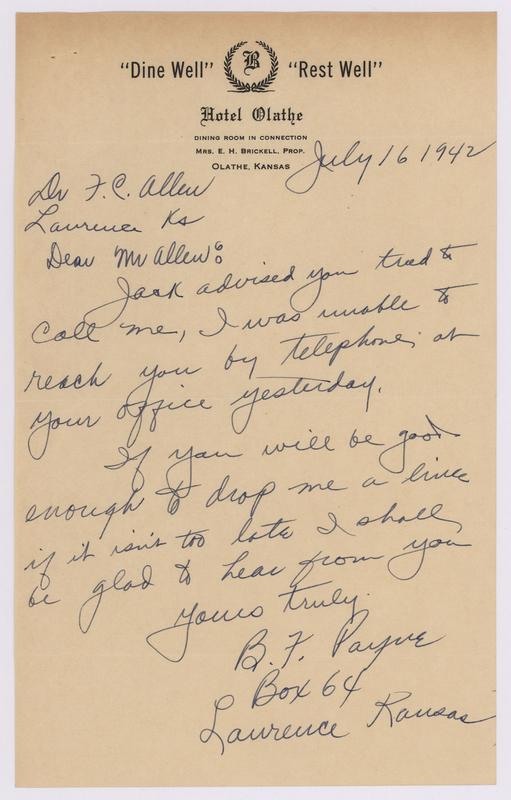 "Dine Well" B "Rest Well"
Hotel Olathe
DINING ROOM IN CONNECTION
MRS. E. H. BRICKELL, PROP.
OLATHE, KANSAS
July 16 1942
Dr F. C. Allen
Lawrence Ks
Dear Mr Allen:
Jack advised you tried to
call me, I was unable to
reach you by telephone, at
your office yesterday.
If you will be good
enough to drop me a line
if it isn't too late I shall
be glad to hear from you
yours truly.
B. F. Payne
Box 64
Lawrence Kansas